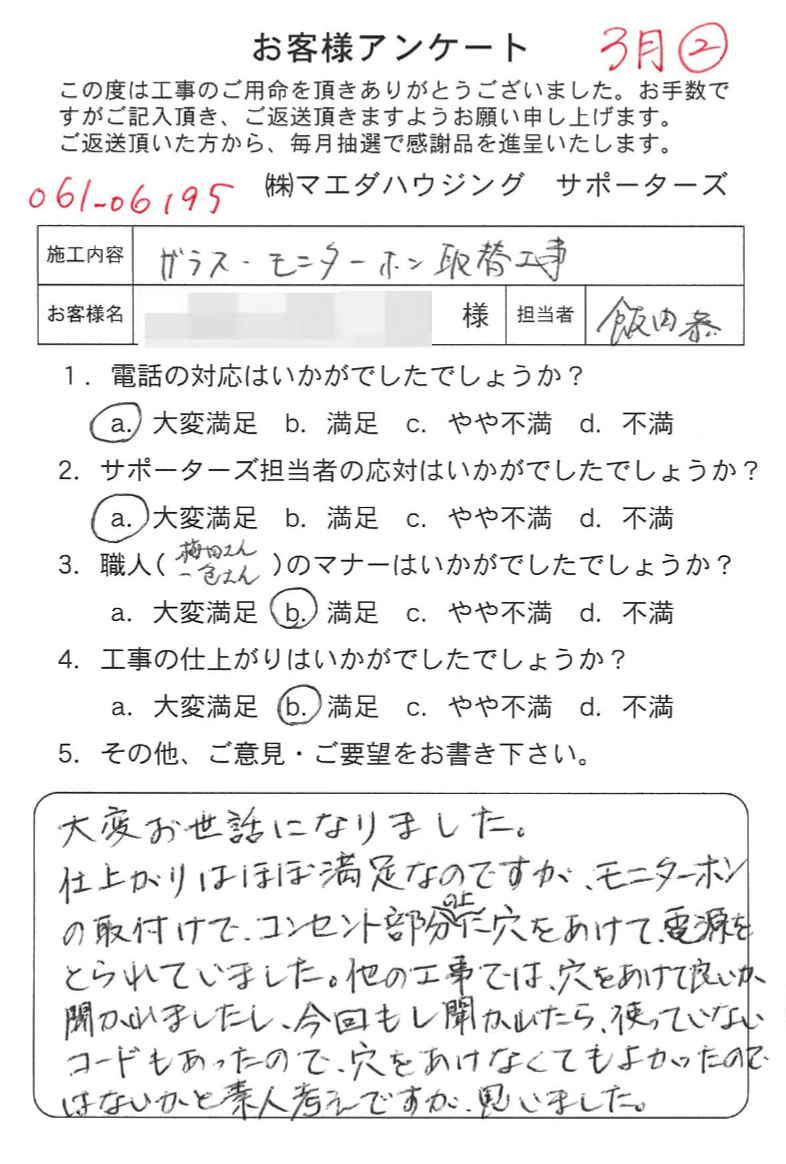 お客様アンケート 3月②
この度は工事のご用命を頂きありがとうございました。お手数で
すがご記入頂き、ご返送頂きますようお願い申し上げます。
ご返送頂いた方から、毎月抽選で感謝品を進呈いたします。
061-06195 ㈱マエダハウジング サポーターズ
施工内容 ガラス・モニターホン取替工事
お客様名 様 担当者 飯田恭
1. 電話の対応はいかがでしたでしょうか？
a. 大変満足 b. 満足 c. やや不満 d. 不満
2. サポーターズ担当者の応対はいかがでしたでしょうか？
a. 大変満足 b. 満足 c. やや不満 d. 不満
3. 職人(梅田さん 一色さん)のマナーはいかがでしたでしょうか？
a. 大変満足 b. 満足 c. やや不満 d. 不満
4. 工事の仕上がりはいかがでしたでしょうか？
a. 大変満足 b. 満足 c. やや不満 d. 不満
5. その他、ご意見・ご要望をお書き下さい。
大変お世話になりました。
仕上がりはほぼ満足なのですが、モニターホン
の取付けで、コンセント部分の上に穴をあけて、電源を
とられていました。他の工事では、穴をあけて良いか、
聞かれましたし、今回もし聞かれたら、使っていない
コードもあったので、穴をあけなくてもよかったので
はないかと素人考えですが、思いました。